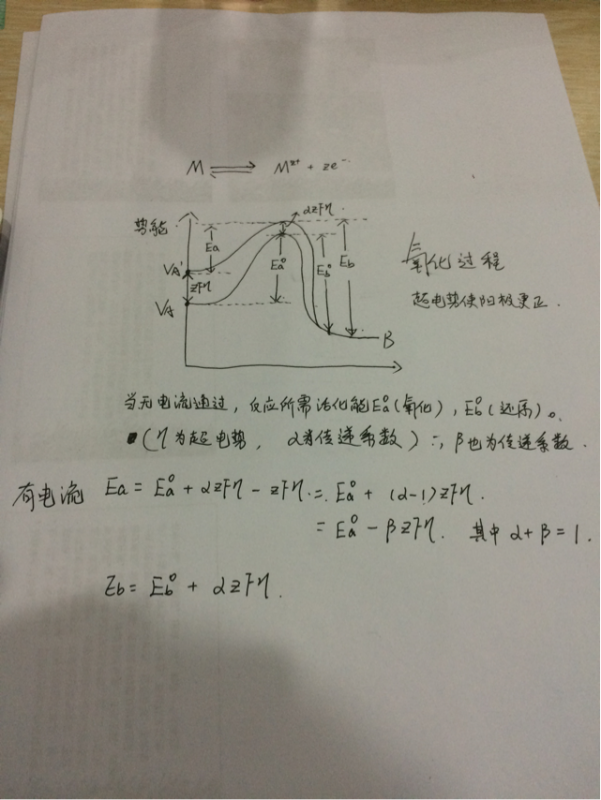 M ⇌ M^z+ + ze⁻.
势能
αzFη
Ea
Ea⁰
Eb⁰
Eb
VA'
zFη
VA
B
氧化过程
超电势使阳极更正.
当无电流通过，反应所需活化能Ea⁰(氧化)，Eb⁰(还原)。
(η为超电势，α为传递系数) ∴ β也为传递系数.
有电流 Ea = Ea⁰ + αzFη - zFη = Ea⁰ + (α-1)zFη.
= Ea⁰ - βzFη. 其中 α+β=1.
Eb = Eb⁰ + αzFη.